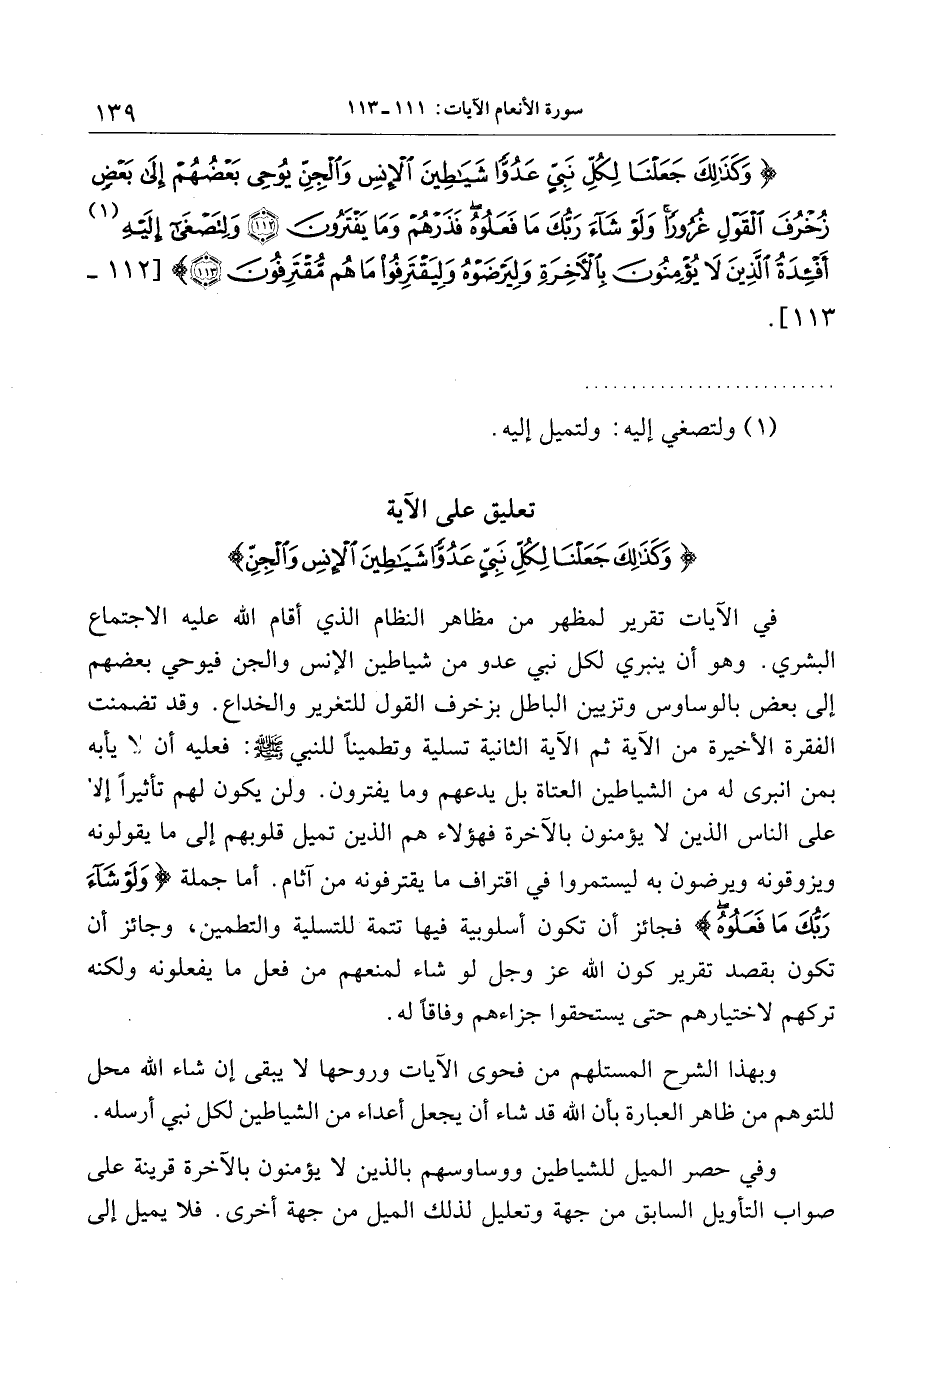 سورة الأنعام الآيات: ١١١-١١٣ ١٣٩
﴿ وَكَذَٰلِكَ جَعَلْنَا لِكُلِّ نَبِيٍّ عَدُوًّا شَيَٰطِينَ ٱلْإِنسِ وَٱلْجِنِّ يُوحِى بَعْضُهُمْ إِلَىٰ بَعْضٍ
زُخْرُفَ ٱلْقَوْلِ غُرُورًا ۚ وَلَوْ شَآءَ رَبُّكَ مَا فَعَلُوهُ ۖ فَذَرْهُمْ وَمَا يَفْتَرُونَ ۝١١٢ وَلِتَصْغَىٰٓ إِلَيْهِ (١)
أَفْـِٔدَةُ ٱلَّذِينَ لَا يُؤْمِنُونَ بِٱلْءَاخِرَةِ وَلِيَرْضَوْهُ وَلِيَقْتَرِفُوا۟ مَا هُم مُّقْتَرِفُونَ ۝١١٣﴾ [١١٢ -
١١٣].
(١) ولتصغي إليه: ولتميل إليه.
تعليق على الآية
﴿ وَكَذَٰلِكَ جَعَلْنَا لِكُلِّ نَبِيٍّ عَدُوًّا شَيَٰطِينَ ٱلْإِنسِ وَٱلْجِنِّ﴾
في الآيات تقرير لمظهر من مظاهر النظام الذي أقام الله عليه الاجتماع
البشري. وهو أن ينبري لكل نبي عدو من شياطين الإنس والجن فيوحي بعضهم
إلى بعض بالوساوس وتزيين الباطل بزخرف القول للتغرير والخداع. وقد تضمنت
الفقرة الأخيرة من الآية ثم الآية الثانية تسلية وتطميناً للنبي ﷺ: فعليه أن لا يأبه
بمن انبرى له من الشياطين العتاة بل يدعهم وما يفترون. ولن يكون لهم تأثيراً إلا
على الناس الذين لا يؤمنون بالآخرة فهؤلاء هم الذين تميل قلوبهم إلى ما يقولونه
ويزوقونه ويرضون به ليستمروا في اقتراف ما يقترفونه من آثام. أما جملة ﴿ وَلَوْ شَآءَ
رَبُّكَ مَا فَعَلُوهُ ۖ﴾ فجائز أن تكون أسلوبية فيها تتمة للتسلية والتطمين، وجائز أن
تكون بقصد تقرير كون الله عز وجل لو شاء لمنعهم من فعل ما يفعلونه ولكنه
تركهم لاختيارهم حتى يستحقوا جزاءهم وفاقاً له.
وبهذا الشرح المستلهم من فحوى الآيات وروحها لا يبقى إن شاء الله محل
للتوهم من ظاهر العبارة بأن الله قد شاء أن يجعل أعداء من الشياطين لكل نبي أرسله.
وفي حصر الميل للشياطين ووساوسهم بالذين لا يؤمنون بالآخرة قرينة على
صواب التأويل السابق من جهة وتعليل لذلك الميل من جهة أخرى. فلا يميل إلى